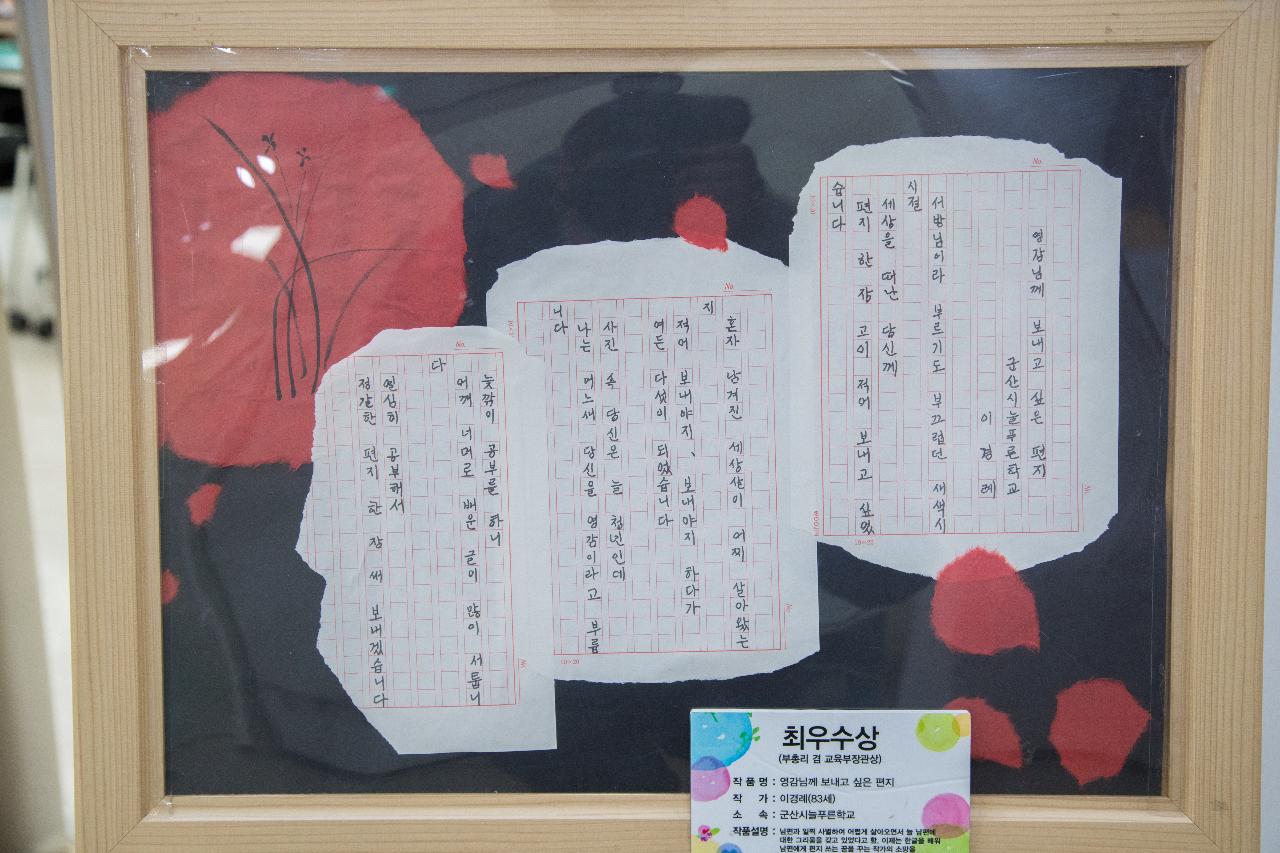 영감님께 보내고 싶은 편지
군산시늘푸른학교
이경례
서방님이라 부르기도 부끄럽던 새색시
시절
세상을 떠난 당신께
편지 한 장 고이 적어 보내고 싶었
습니다
혼자 남겨진 세상살이 어찌 살아왔는
지
적어 보내야지, 보내야지 하다가
여든 다섯이 되었습니다
사진 속 당신은 늘 청년인데
나는 어느새 당신을 영감이라고 부릅
니다
늦깎이 공부를 하니
어깨 너머로 배운 글이 많이 서툽니
다
열심히 공부해서
정갈한 편지 한 장 써 보내겠습니다
No.
10×20
No.
10×20
No.
최우수상
(부총리 겸 교육부장관상)
작품명 : 영감님께 보내고 싶은 편지
작가 : 이경례(83세)
소속 : 군산시늘푸른학교
작품설명 : 남편과 일찍 사별하여 어렵게 살아오면서 늘 남편에
대한 그리움을 갖고 있었다고 함. 이제는 한글을 배워
남편에게 편지 쓰는 꿈을 꾸는 작가의 소망을